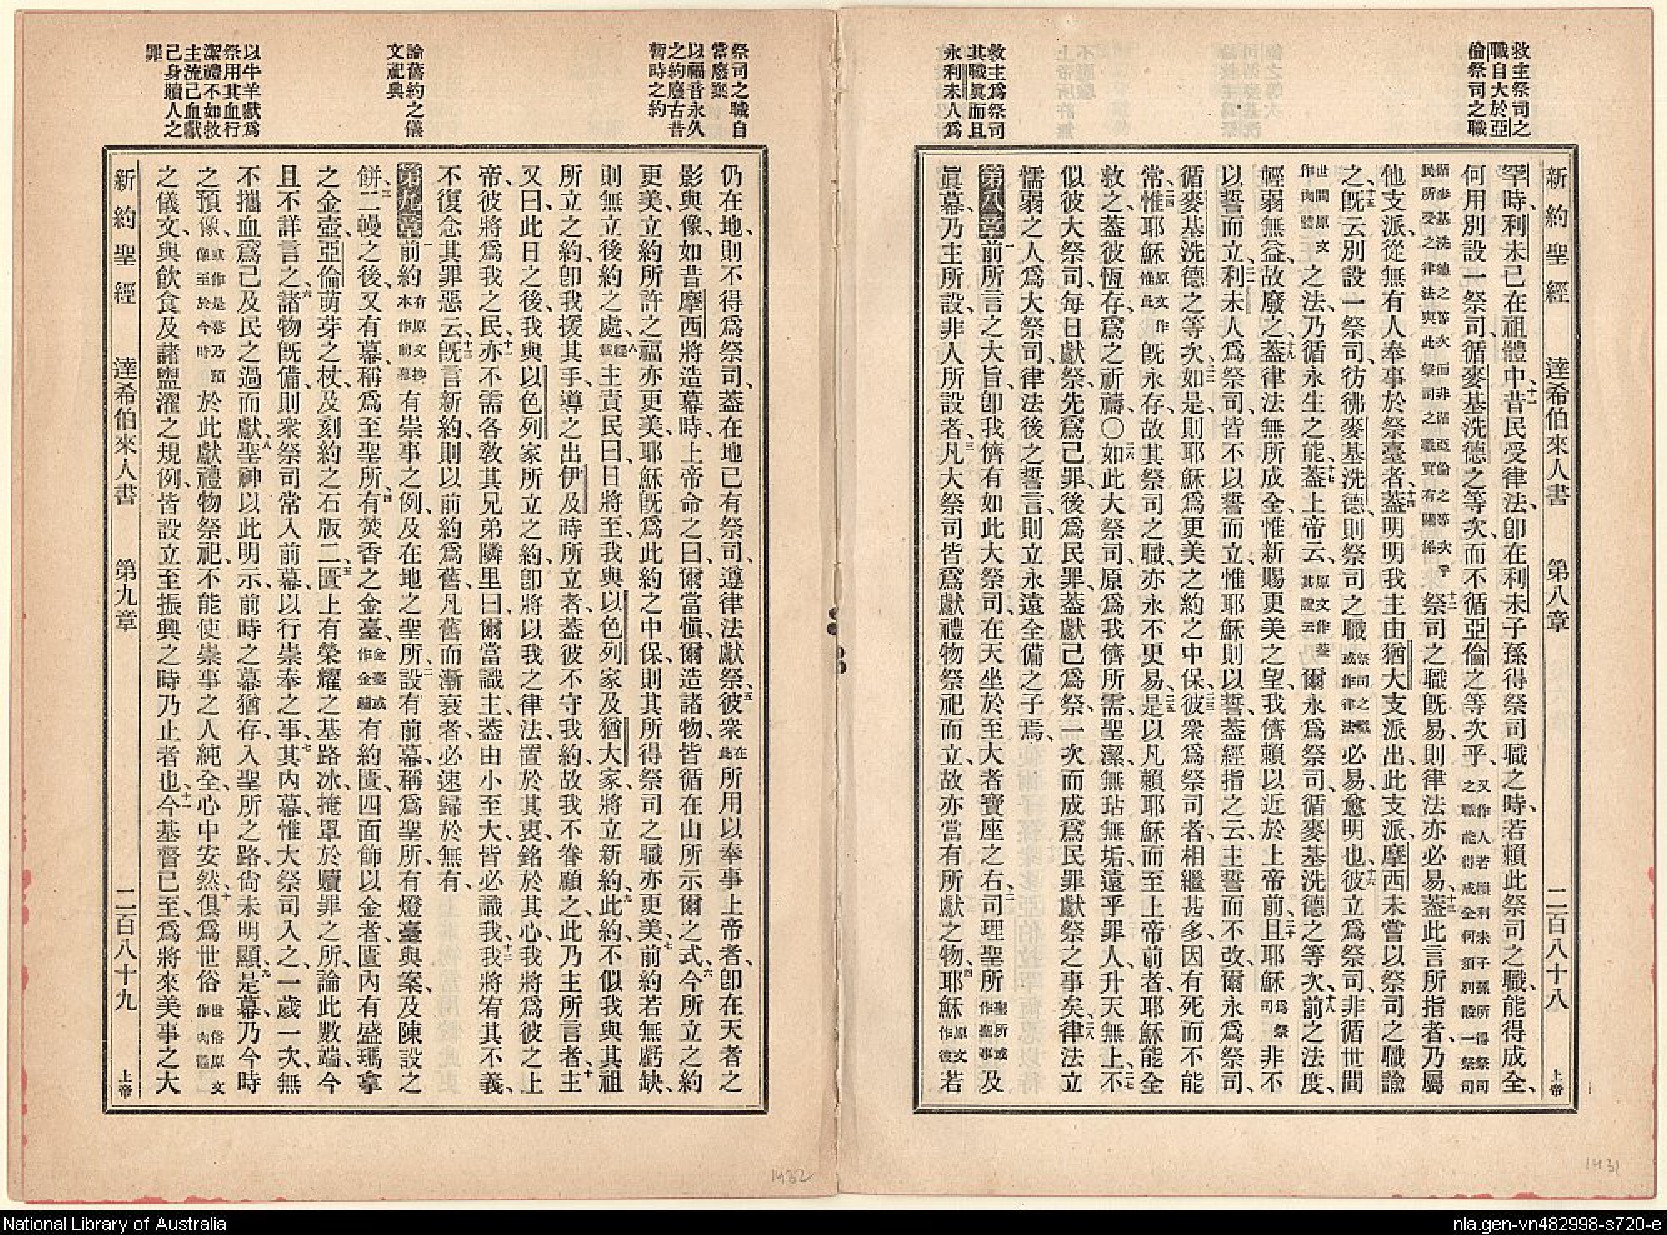 救主祭司之
職自大於亞
倫祭司之職
救主為祭司
其職眞而且
永利未人為
新約聖經 達希伯來人書 第八章 二百八十八 上帝
罕時、利未已在祖體中、十一昔民受律法、卽在利未子孫得祭司職之時、若賴此祭司之職、能得成全、
何用別設一祭司、循麥基洗德之等次、而不循亞倫之等次乎、又作人若賴利未子孫所得祭司之職能得成全何須別設一祭司
循麥基洗德之等次而非循亞倫之等次乎民所受之律法與此祭司之職實有關係十二祭司之職旣易、則律法亦必易、十三蓋此言所指者、乃屬
他支派、從無有人奉事於祭臺者、十四蓋明明我主由猶大支派出、此支派、摩西未嘗以祭司之職諭
之、十五旣云別設一祭司、彷彿麥基洗德、則祭司之職祭司之職或作律法必易愈明也、十六彼立爲祭司、非循世間
世間原文作肉體之法、乃循永生之能、十七蓋上帝云原文作蓋其證云爾永爲祭司、循麥基洗德之等次、十八前之法度、
輕弱無益、故廢之、十九蓋律法無所成全、惟新賜更美之望、我儕賴以近於上帝前、二十且耶穌爲祭司非不
以誓而立、二一利未人爲祭司、皆不以誓而立、惟耶穌則以誓、蓋經指之云、主誓而不改、爾永爲祭司、
循麥基洗德之等次、二二如是、則耶穌爲更美之約之中保、二三彼衆爲祭司者、相繼甚多、因有死而不能
常、二四惟耶穌原文作惟此旣永存、故其祭司之職、亦永不更易、二五是以凡賴耶穌而至上帝前者、耶穌能全
救之、蓋彼恆存、爲之祈禱、〇二六如此大祭司、原爲我儕所需、聖潔、無玷、無垢、遠乎罪人、升天無上、二七不
似彼大祭司、每日獻祭、先爲己罪、後爲民罪、蓋獻己爲祭、一次而成爲民罪獻祭之事矣、二八律法立
懦弱之人爲大祭司、律法後之誓言、則立永遠全備之子焉、
第八章一前所言之大旨、卽我儕有如此大祭司、在天坐於至大者寶座之右、二司理聖所聖所或作聖事及
眞幕、乃主所設、非人所設者、三凡大祭司、皆爲獻禮物祭祀而立、故亦當有所獻之物、四耶穌原文作彼若
祭司之職自
當廢棄
以福音永久
之約廢古昔
暫時之約
論舊約之儀
文祀典
以牛羊獻爲
祭用其血行
潔禮不如救
主流己血獻
己身贖人之
罪
仍在地、則不得爲祭司、蓋在地已有祭司、遵律法獻祭、五彼衆在此所用以奉事上帝者、卽在天者之
影與像、如昔摩西將造幕時、上帝命之曰、爾當愼、爾造諸物、皆循在山所示爾之式、六今所立之約
更美、立約所許之福亦更美、耶穌旣爲此約之中保、則其所得祭司之職亦更美、七前約若無虧缺、
則無立後約之處、八經載主責民曰、日將至、我與以色列家及猶大家將立新約、九此約不似我與其祖
所立之約、卽我援其手、導之出伊及時所立者、蓋彼不守我約、故我不眷顧之、此乃主所言者、十主
又曰、此日之後、我與以色列家所立之約、卽將以我之律法、置於其衷、銘於其心、我將爲彼之上
帝、彼將爲我之民、十一亦不需各敎其兄弟隣里曰、爾當識主、蓋由小至大、皆必識我、十二我將宥其不義、
不復念其罪惡云、十三旣言新約、則以前約爲舊、凡舊而漸衰者、必速歸於無有、
第九章一前約有原文抄本作前幕有崇事之例、及在地之聖所、二設有前幕、稱爲聖所、有燈臺與案、及陳設之
餅、三二幔之後、又有幕、稱爲至聖所、四有焚香之金臺、金臺或作金罏有約匱、四面飾以金者、匱內有盛瑪拿
之金壺、亞倫萌芽之杖、及刻約之石版二、五匱上有榮耀之基路冰、掩罩於贖罪之所、論此數端、今
且不詳言之、六諸物旣備、則衆祭司常入前幕、以行崇奉之事、七其內幕、惟大祭司入之、一歲一次、無
不攜血爲己及民之過而獻、八聖神以此明示、前時之幕猶存、入聖所之路尙未明顯、九是幕、乃今時
之預像、或作是幕乃預像至於今時於此獻禮物祭祀、不能使崇事之人純全、心中安然、十俱爲世俗世俗原文作肉體
之儀文、與飲食及諸盥濯之規例、皆設立至振興之時乃止者也、十一今基督已至、爲將來美事之大
新約聖經 達希伯來人書 第九章 二百八十九 上帝
1432
1431
National Library of Australia
nla.gen-vn482998-s720-e